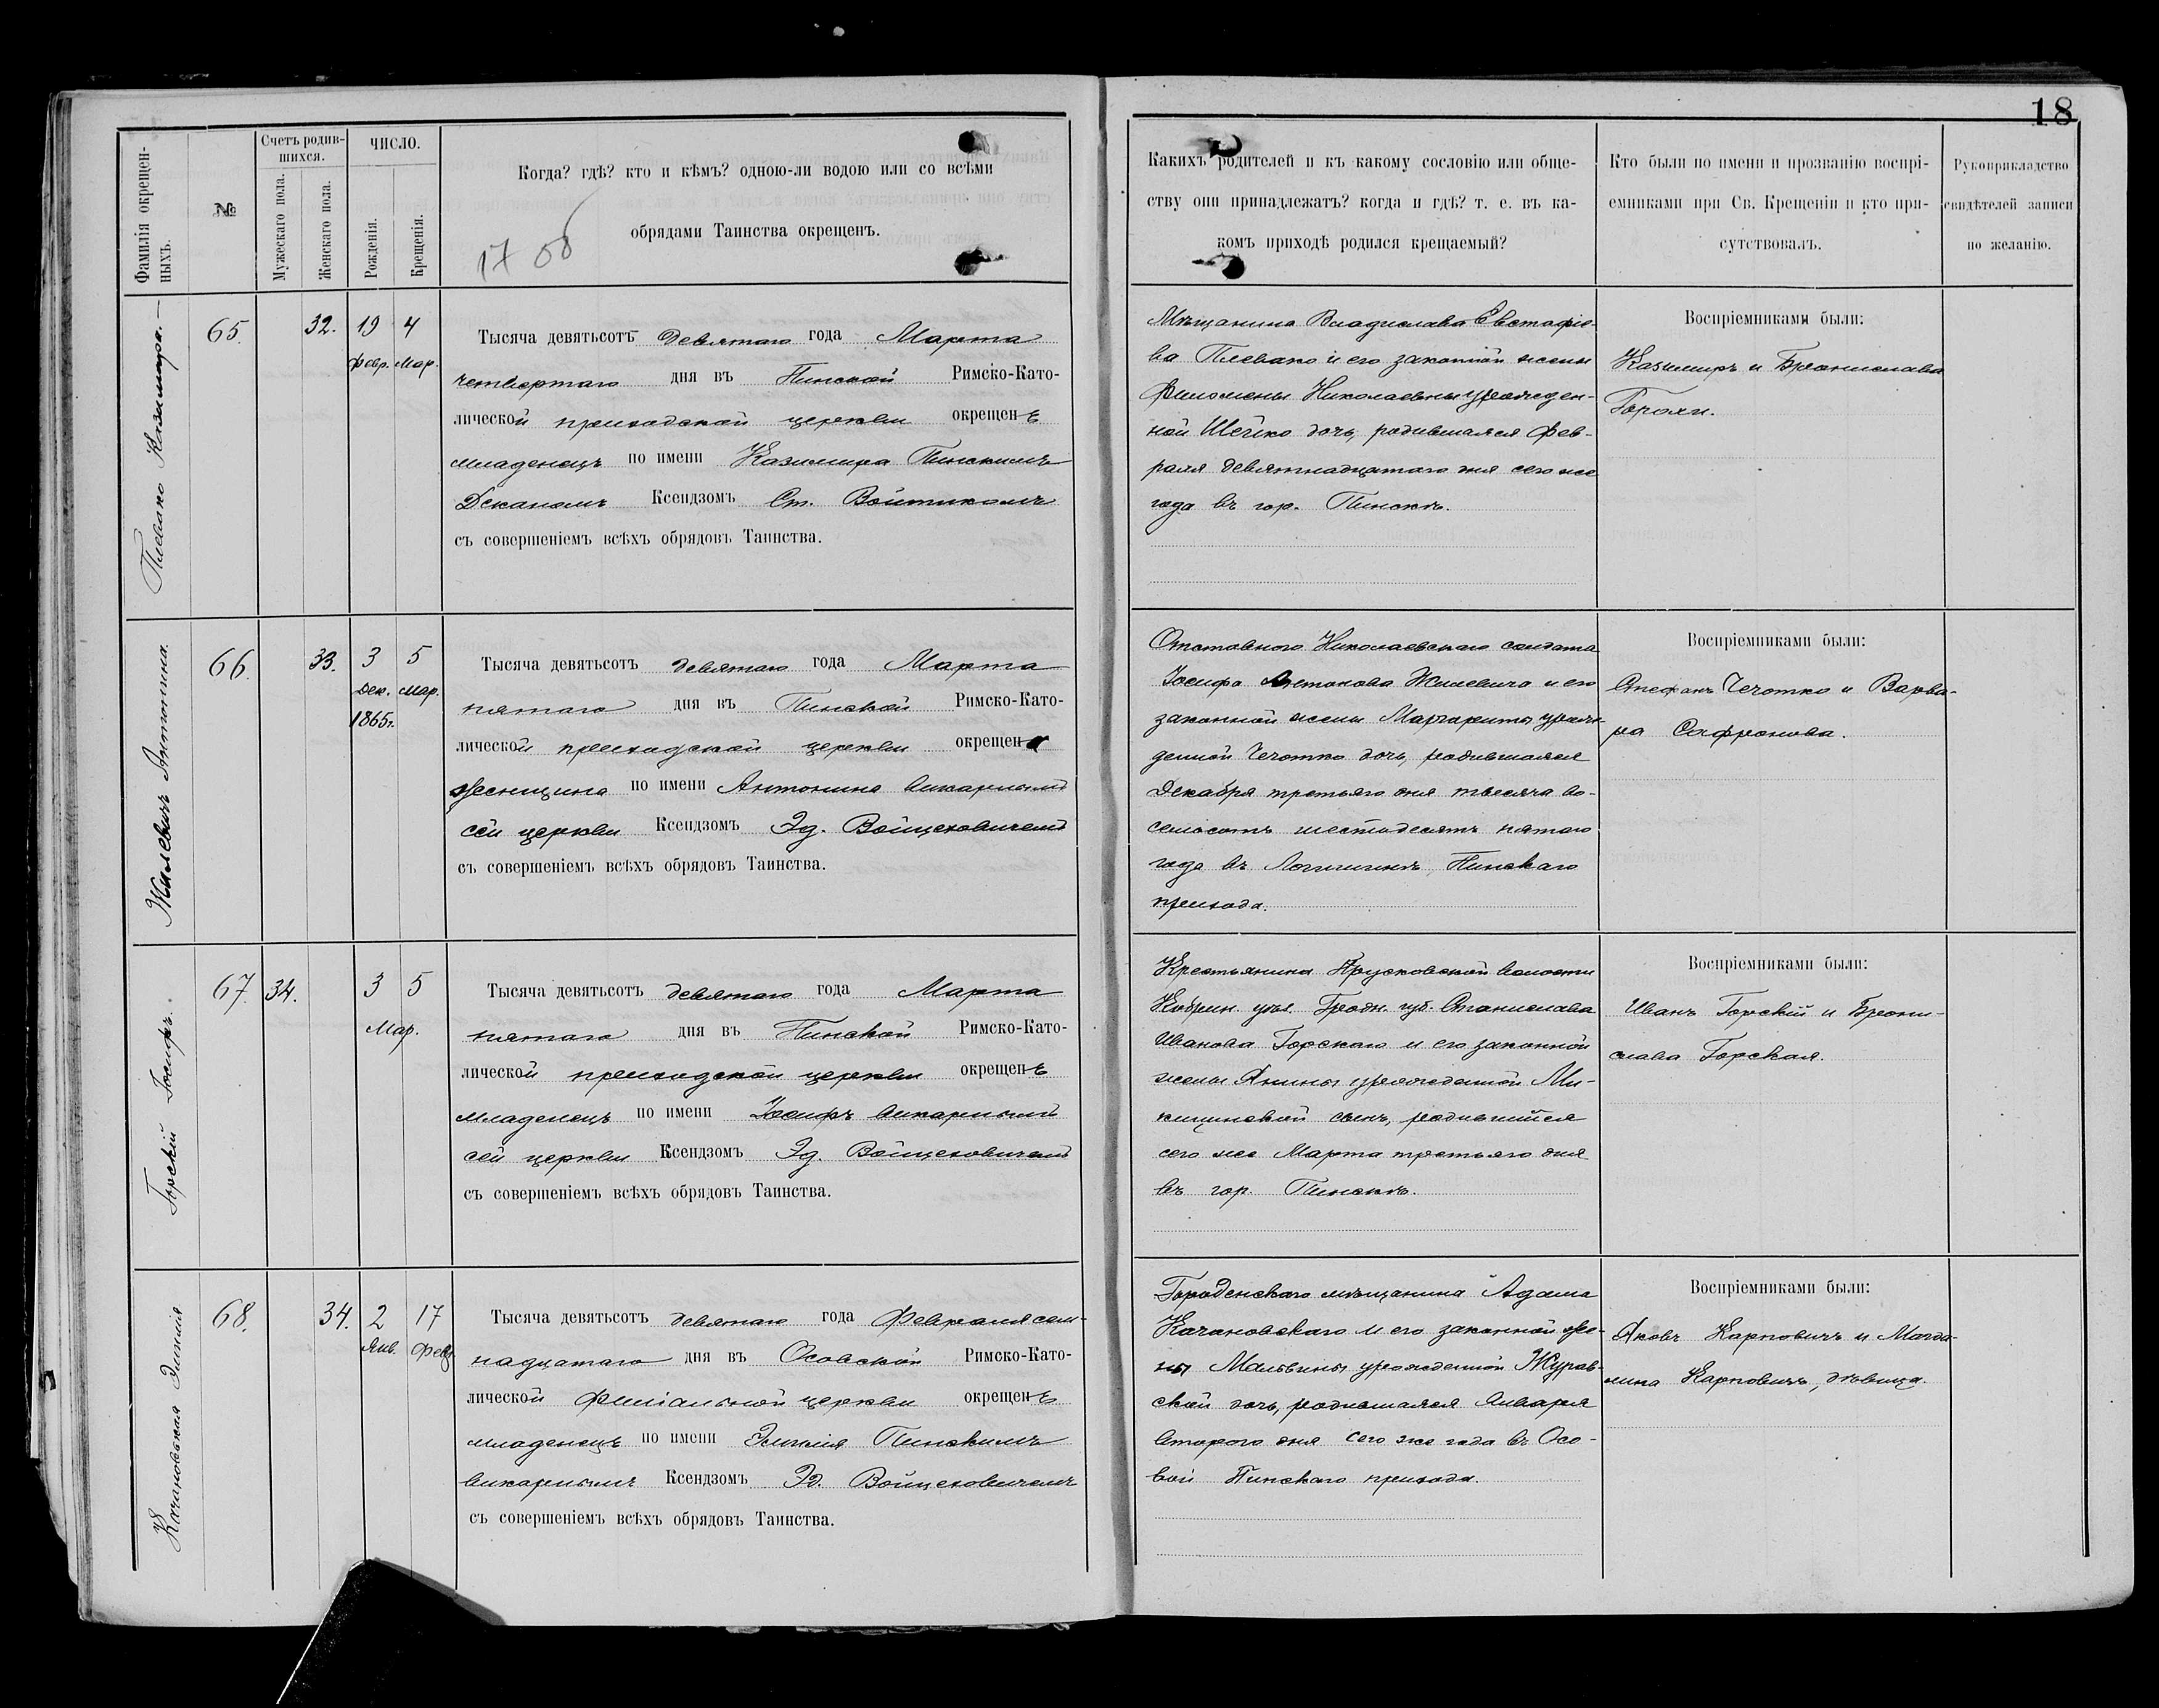 18
Фамилія окрещен-
ныхъ.
№
Счетъ родив-
шихся.
Мужескаго пола.
Женскаго пола.
ЧИСЛО.
Рожденія.
Крещенія.
Когда? гдѣ? кто и кѣмъ? одною-ли водою или со всѣми
обрядами Таинства окрещенъ.
Какихъ родителей и къ какому сословію или обще-
ству они принадлежатъ? когда и гдѣ? т. е. въ ка-
комъ приходѣ родился крещаемый?
Кто были по имени и прозванію воспрі-
емниками при Св. Крещеніи и кто при-
сутствовалъ.
Рукоприкладство
свидѣтелей записи
по желанію.
Плевако Казимира.
65.
32.
19 4
Февр. Мар.
Тысяча девятьсотъ девятаго года Марта
четвертаго дня въ Пинской Римско-Като-
лической приходской церкви окрещенъ
младенецъ по имени Казимира Пинскимъ
Деканомъ Ксендзомъ Ст. Войтикомъ
съ совершеніемъ всѣхъ обрядовъ Таинства.
Мѣщанина Владислава Евстафіе-
ва Плевако и его законной жены
Филомены Николаевны урожден-
ной Шейко дочь, родившаяся Фев-
раля девятнадцатаго дня сего же
года въ гор. Пинскѣ.
Воспріемниками были:
Казимиръ и Брониславa
Жилевичъ Антонина.
66.
33.
3 5
Дек. Мар.
1865г.
Тысяча девятьсотъ девятаго года Марта
пятаго дня въ Пинской Римско-Като-
лической приходской церкви окрещена
женщина по имени Антонина викарнымъ
сей церкви Ксендзомъ Эд. Войцеховичемъ
съ совершеніемъ всѣхъ обрядовъ Таинства.
Отставного Николаевскаго солдата
Іосифа Антонова Жилевича и его
законной жены Маргариты урож-
денной Чечотко дочь, родившаяся
Декабря третьяго дня тысяча во-
семьсотъ шестьдесятъ пятаго
года въ Логишинѣ, Пинскаго
прихода.
Воспріемниками были:
Стефанъ Чечотко и Варва-
ра Сафронова.
Горскій Іосифъ.
67.
34.
3 5
Мар.
Тысяча девятьсотъ девятаго года Марта
пятаго дня въ Пинской Римско-Като-
лической приходской церкви окрещенъ
младенецъ по имени Іосифъ викарнымъ
сей церкви Ксендзомъ Эд. Войцеховичемъ
съ совершеніемъ всѣхъ обрядовъ Таинства.
Крестьянина Прусковской волости
Кобрин. уѣз. Гродн. губ. Станислава
Иванова Горскаго и его законной
жены Янины урожденной Ми-
сынъ, родившійся
сего же Марта третьяго дня
въ гор. Пинскѣ.
Воспріемниками были:
Иванъ Горскій и Брони-
слава Горская.
Качановская Эмилія
68.
34.
2 17
Янв. Февр.
Тысяча девятьсотъ девятаго года Февраля сем-
надцатаго дня въ Осовской Римско-Като-
лической филіальной церкви окрещенъ
младенецъ по имени Эмилія Пинскимъ
викарнымъ Ксендзомъ Эд. Войцеховичемъ
съ совершеніемъ всѣхъ обрядовъ Таинства.
Городенскаго мѣщанина Адама
Качановскаго и его законной же-
ны Мальвины урожденной Журав-
ской дочь, родившаяся Января
второго дня сего же года въ Осо-
вой Пинскаго прихода.
Воспріемниками были:
Яковъ Карповичъ и Магда-
лина Карповичъ, дѣвица.